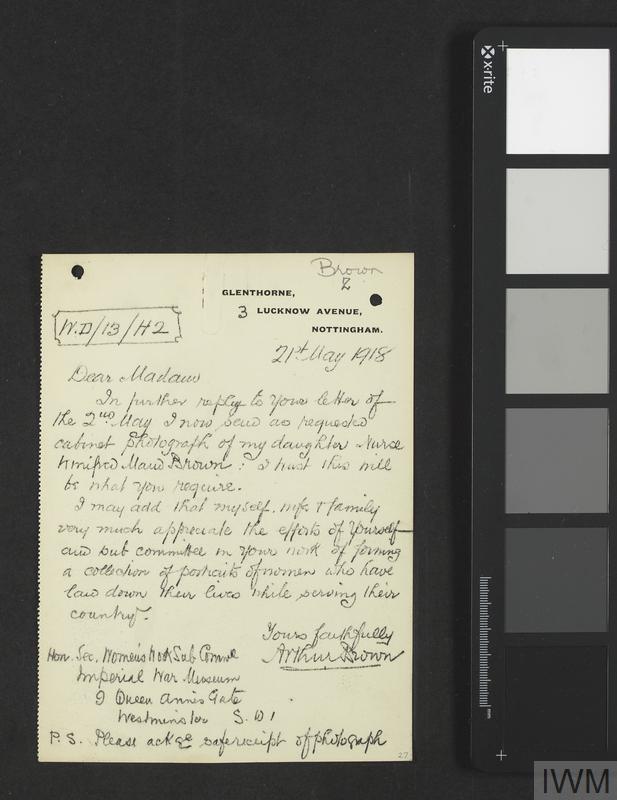 Brown
2
GLENTHORNE,
3 LUCKNOW AVENUE,
NOTTINGHAM.
W.D/13/H2
21st May 1918
Dear Madam
In further reply to your letter of
the 2nd May I now send as requested
cabinet photograph of my daughter Nurse
Winifred Maud Brown: I trust this will
be what you require.
I may add that myself, wife & family
very much appreciate the efforts of yourself
and sub committee in your work of forming
a collection of portraits of women who have
laid down their lives while serving their
country.
Yours faithfully
Arthur Brown
Hon. Sec. Women's Work Sub Commee
Imperial War Museum
2 Queen Annes Gate
Westminster S.W1
P.S. Please ackge safe receipt of photograph
27
x-rite
mm
IWM